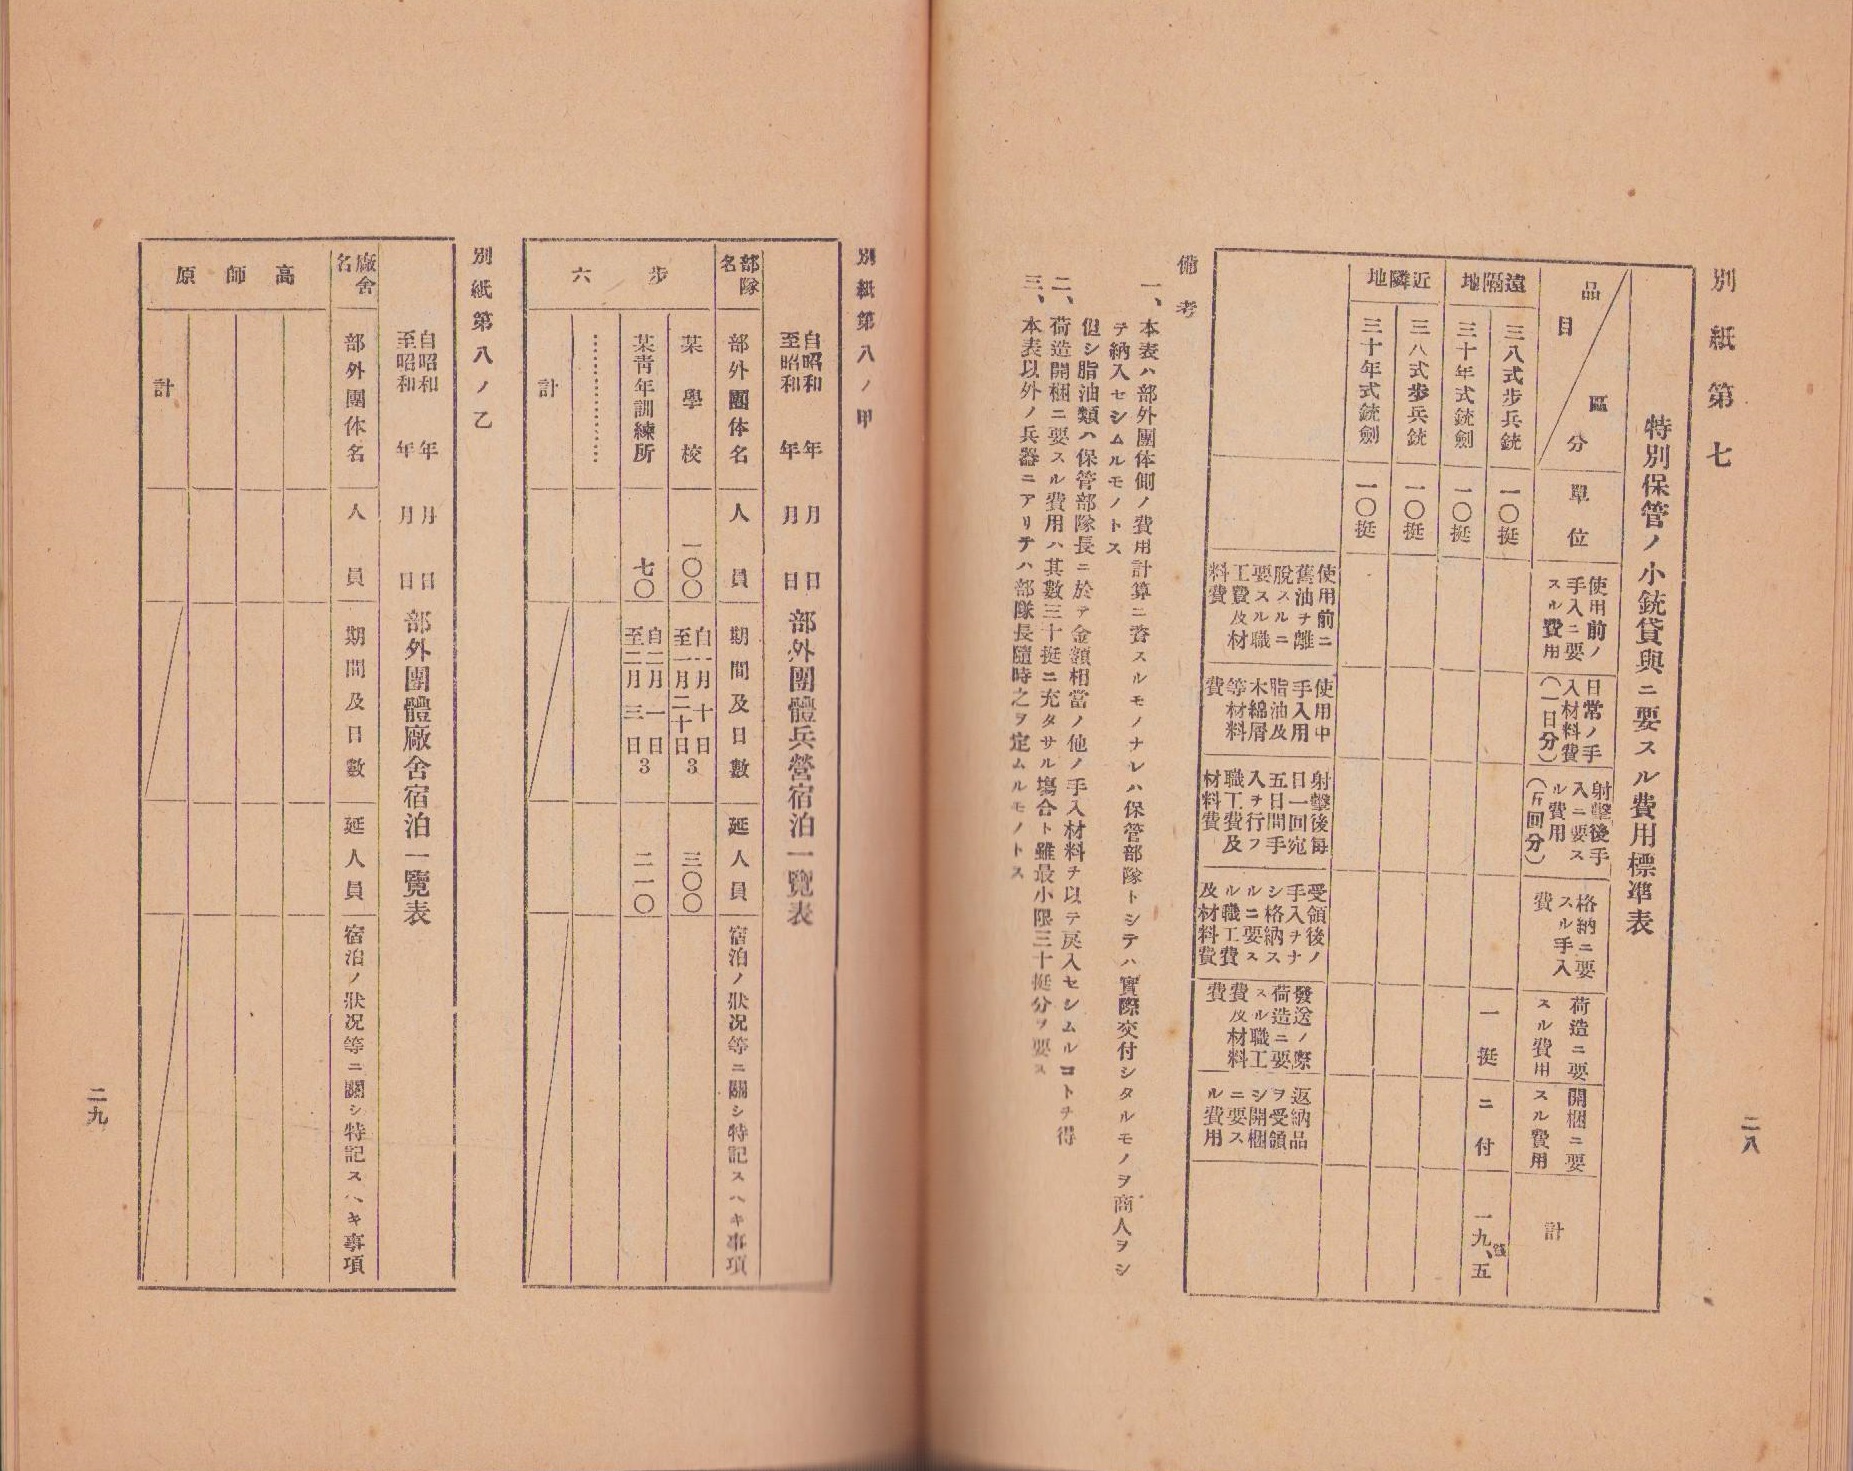 別紙第七
特別保管ノ小銃貸與ニ要スル費用標準表
品目
區分
單位
使用前ノ手入ニ要スル費用
日常ノ手入材料費(一日分)
射擊後手入ニ要スル費用
格納ニ要スル手入費
荷造ニ要スル費用
開梱ニ要スル費用
計
遠隔地
三八式步兵銃
一〇挺
三十年式銃劍
一〇挺
一挺ニ付
一九、五
近隣地
三八式步兵銃
一〇挺
三十年式銃劍
一〇挺
使用前ニ舊油ヲ離脫スルニ要スル職工費及材料費
使用中手入用脂油及木綿屑等材料費
射擊後每日一回宛五日間手入ヲ行フ職工費及材料費
受領後ノ手入ヲナシ格納スルニ要スル職工費及材料費
發送ノ際荷造ニ要スル職工費及材料費
返納品ヲ受領シ開梱ニ要スル費用
備考
一、本表ハ部外團体側ノ費用計算ニ資スルモノナレハ保管部隊トシテハ實際交付シタルモノヲ商人ヲシ
テ納入セシムルモノトス
但シ脂油類ハ保管部隊長ニ於テ金額相當ノ他ノ手入材料ヲ以テ戾入セシムルコトヲ得
二、荷造開梱ニ要スル費用ハ其數三十挺ニ充タサル塲合ト雖最小限三十挺分ヲ要ス
三、本表以外ノ兵器ニアリテハ部隊長隨時之ヲ定ムルモノトス
二八
別紙第八ノ甲
自昭和 年 月 日
至昭和 年 月 日
部外團體兵營宿泊一覽表
部隊名
部外團体名
人員
期間及日數
延人員
宿泊ノ狀況等ニ關シ特記スヘキ事項
步六
某學校
一〇〇
自一月十日
至一月二十日
3
三〇〇
某靑年訓練所
七〇
自二月一日
至二月三日
3
二一〇
計
別紙第八ノ乙
自昭和 年 月 日
至昭和 年 月 日
部外團體廠舍宿泊一覽表
廠舍名
部外團体名
人員
期間及日數
延人員
宿泊ノ狀況等ニ關シ特記スヘキ事項
高師原
計
二九